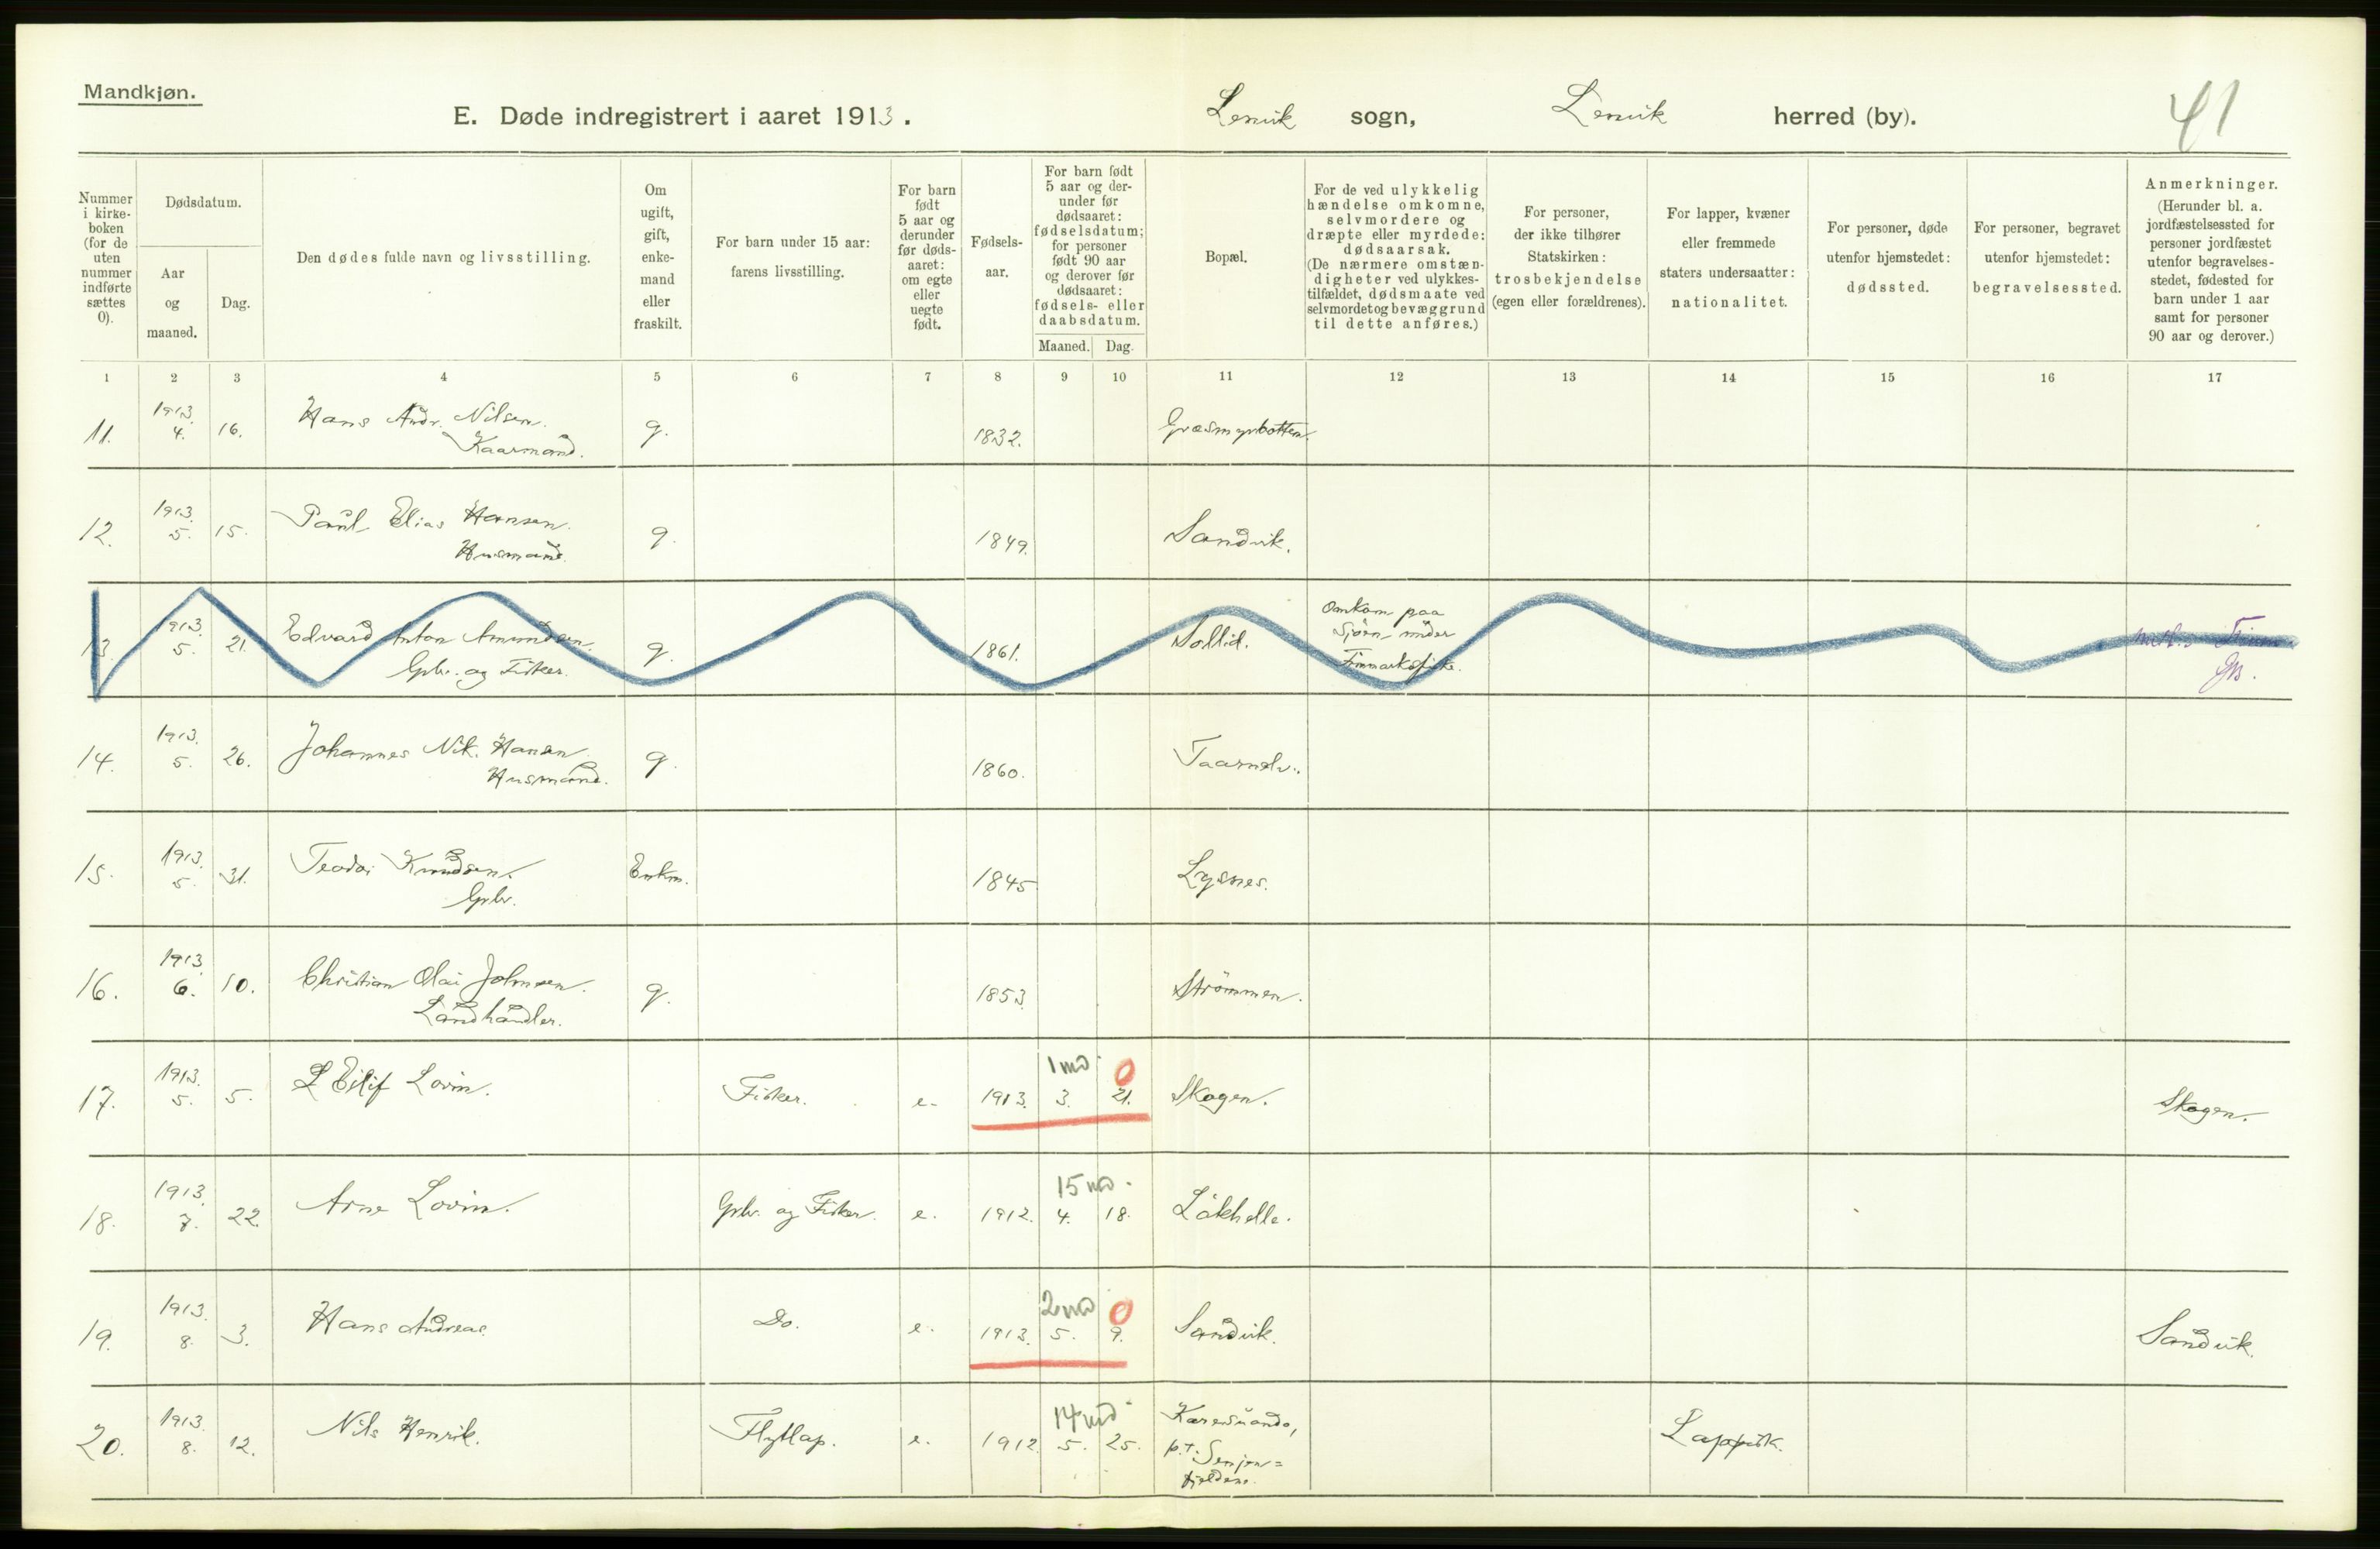 Mandkjøn.
E. Døde indregistrert i aaret 1913.
Lenvik sogn, Lenvik herred (by).
41
Nummer i kirke-boken (for de uten nummer indførte sættes 0).
Dødsdatum.
Aar og maaned.
Dag.
Den dødes fulde navn og livsstilling.
Om ugift, gift, enke-mand eller fraskilt.
For barn under 15 aar: farens livsstilling.
For barn født 5 aar og derunder før døds-aaret: om egte eller uegte født.
Fødsels-aar.
For barn født 5 aar og der-under før dødsaaret: fødselsdatum; for personer født 90 aar og derover før dødsaaret: fødsels- eller daabsdatum.
Maaned. Dag.
Bopæl.
For de ved ulykkelig hændelse omkomne, selvmordere og dræpte eller myrdede: dødsaarsak. (De nærmere omstæn-digheter ved ulykkes-tilfældet, dødsmaate ved selvmordet og bevæggrund til dette anføres.)
For personer, der ikke tilhører Statskirken: trosbekjendelse (egen eller forældrenes).
For lapper, kvæner eller fremmede staters undersaatter: nationalitet.
For personer, døde utenfor hjemstedet: dødssted.
For personer, begravet utenfor hjemstedet: begravelsessted.
Anmerkninger. (Herunder bl. a. jordfæstelsessted for personer jordfæstet utenfor begravelses-stedet, fødested for barn under 1 aar samt for personer 90 aar og derover.)
1 2 3 4 5 6 7 8 9 10 11 12 13 14 15 16 17
11. 1913. 4. 16. Hans Andr. Nilsen. g. 1832. Græsmyrbotten.
Kaarmand.
12. 1913. 5. 15. Paul Elias Hansen. g. 1849. Sandvik.
Husmand.
13. 1913. 5. 21. Edvard Anton Amundsen. g. 1861. Sollid. Omkom paa
Gbr. og Fisker. Sjöen under
Finmarksfiske.
14. 1913. 5. 26. Johannes Nik. Hansen g. 1860. Taarnelv.
Husmand.
15. 1913. 5. 31. Teodor Knudsen. Enkm. 1845 Lysnes.
Gbr.
16. 1913 6. 10. Christian Olai Johnsen. g. 1853 Strömmen.
Landhandler.
17. 1913. 5. 5. Eilif Lovin. Fisker. e. 1913. 3. 21. 1 md 0 Skogen. Skogen.
18. 1913. 7. 22. Arne Lovin. Gbr. og Fisker. e. 1912. 4. 18. 15 md. Låkhelle.
19. 1913. 8. 3. Hans Andreas. Do. e. 1913. 5. 9. 2 md 0 Sandvik. Sandvik.
20. 1913. 8. 12. Nils Henrik. Flytlap. e. 1912. 5. 25. 14 md Karesuando, Lappisk.
p.t. Senjen=
fjeldene.